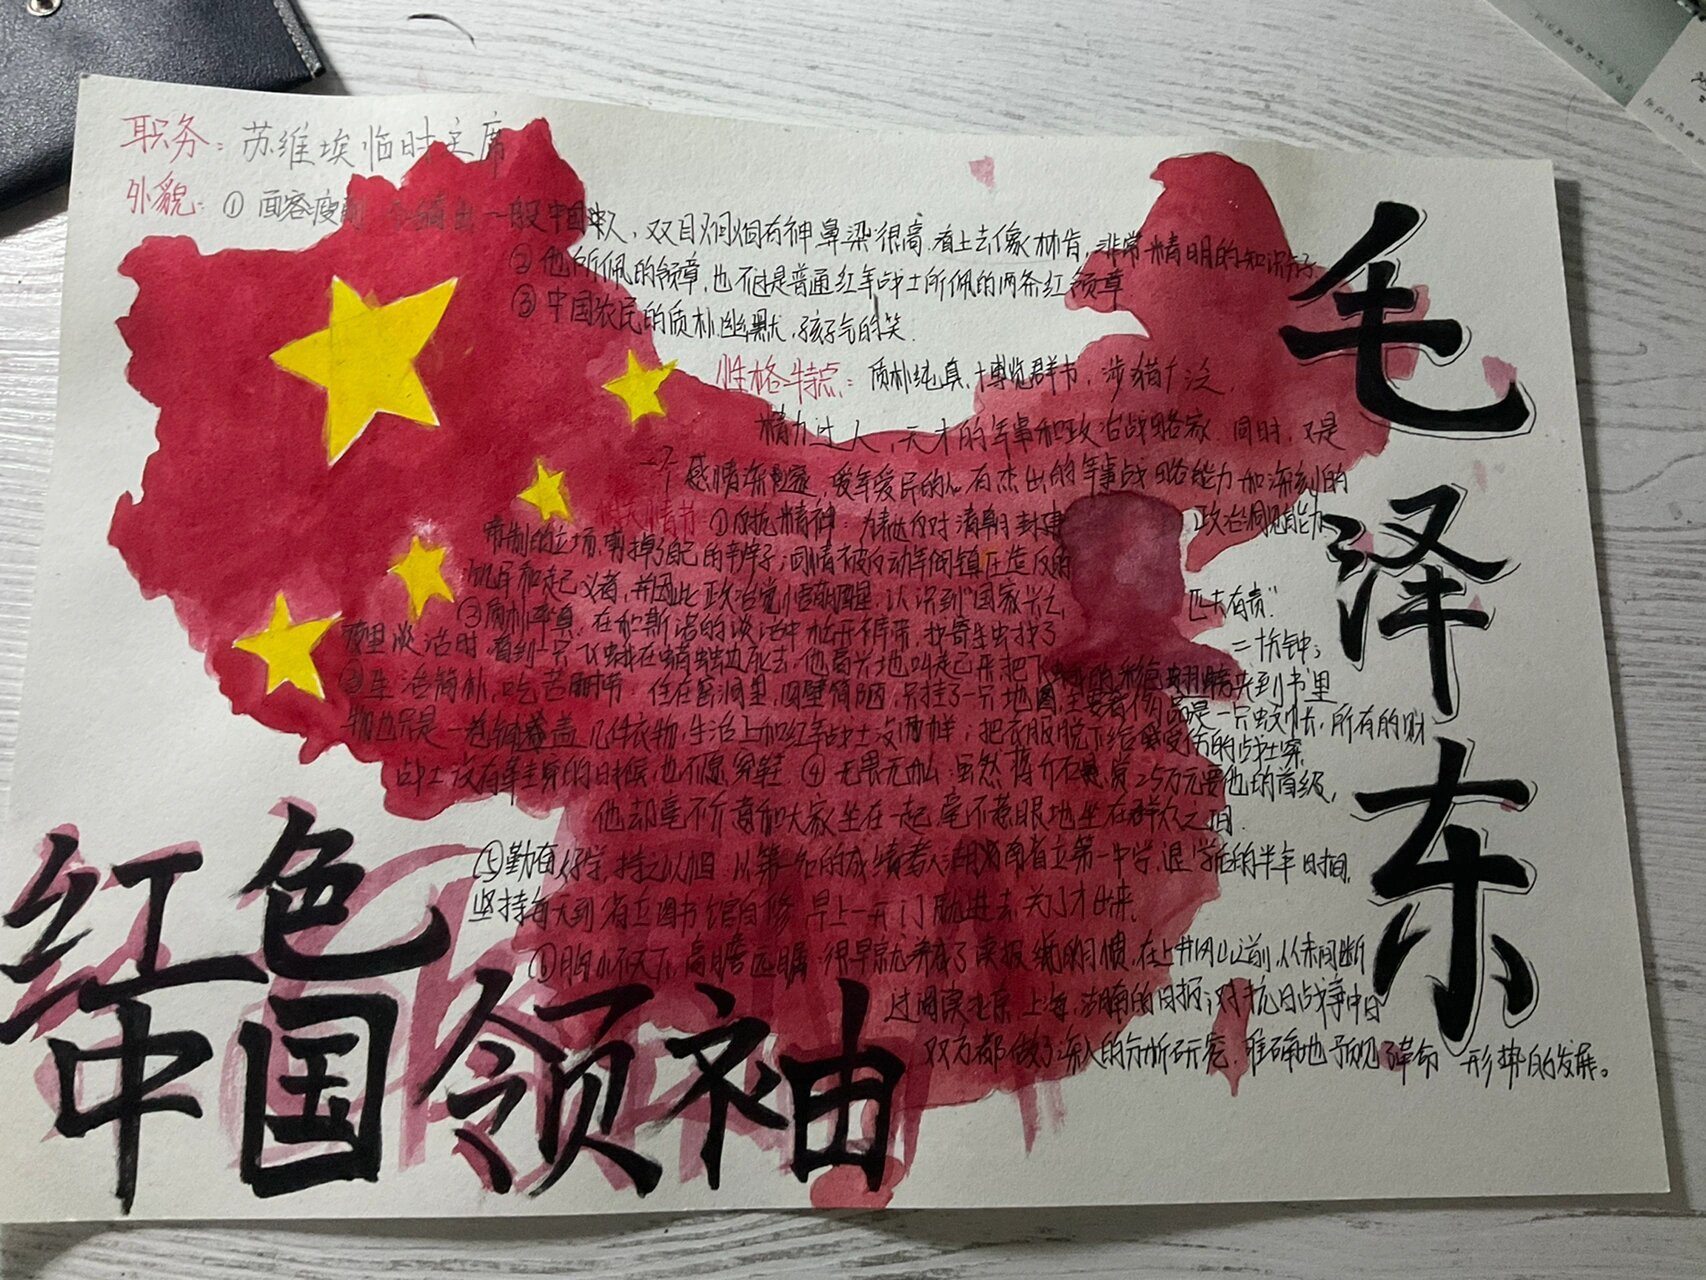 职务：苏维埃临时主席
外貌：①面容瘦削 一般中国人，双目炯炯有神鼻梁很高，看上去像林肯，非常精明的知识分子
②他所佩的领章，也不过是普通红军战士所佩的两条红领章
③中国农民的质朴幽默，孩子气的笑．
性格特点：质朴纯真，博览群书，涉猎广泛，
精力过人，天才的军事和政治战略家．同时，又是
一个感情深邃，爱军爱民的人 有杰出的军事战略能力和深刻的
政治洞见能力
相关情书 ①反抗精神：为表达内对清朝封建
帝制的立场，剪掉了自己的辫子；同情被反动军阀镇压造反的
饥民和起义者，并因此政治觉悟醒，认识到"国家兴亡，
匹夫有责"
③质朴率真，在和斯诺的谈话中松开裤带，找寄生虫找了
二十分钟；
夜里谈话时，看到一只飞蛾在蜡烛边死去，他高兴地叫起已来把飞蛾的 翅膀夹到书里
②生活简朴，吃苦耐劳 住在窑洞里，四壁简陋，只挂了一只地图，主要奢侈品是一只蚊帐，所有的财
物也只是一卷铺盖 几件衣物，生活上和红军战士没两样；把衣服脱下给受伤的战士穿
战士没有鞋穿的时候，也不愿穿鞋 ④无畏无私：虽然蒋介石悬赏25万元要他的首级，
他却毫不介意和大家坐在一起，毫不 眼地坐在群众之间．
⑤勤奋好学，持之以恒：以第一名的成绩考入湖南省立第一中学，退学后的半年时间，
坚持每天到省立图书馆自修 早上一开门 进去 关门才出来．
①胸怀天下，高瞻远瞩：很早就养成了读报纸的习惯，在上井冈山之前，从未间断
过阅读北京，上海，湖南的日报；对抗日战争中日
双方都做了深入的分析研究，准确地预见了革命 形势的发展。
毛泽东
红色
中国领袖